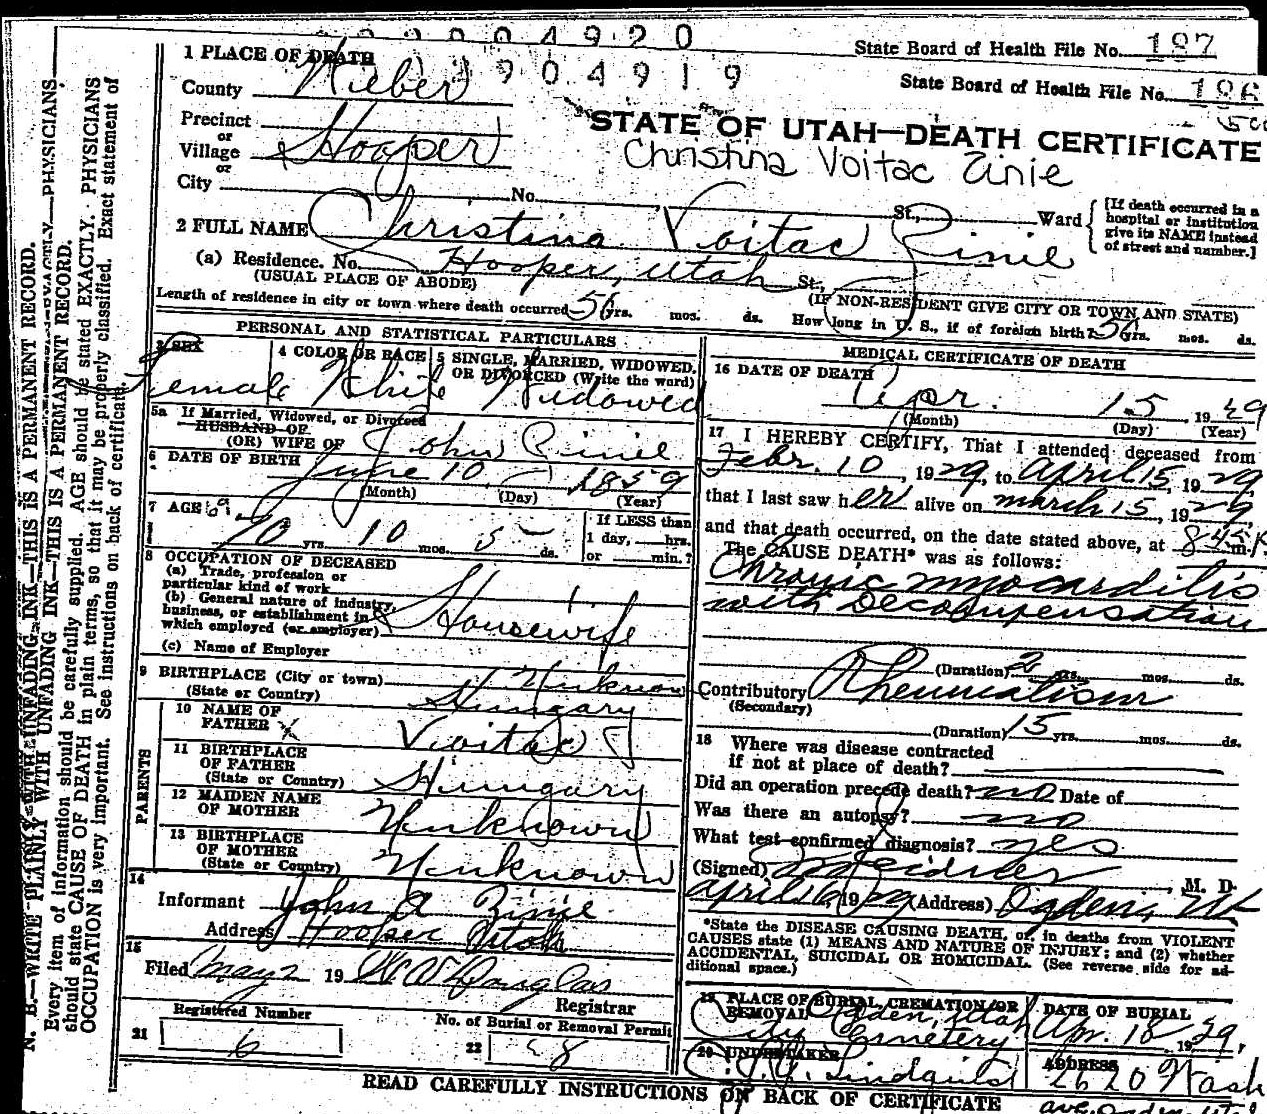 2904920
1904919
State Board of Health File No. 187
State Board of Health File No. 186
1 PLACE OF DEATH
County Weber
Precinct
or
Village Hooper
or
City No. St., Ward
[If death occurred in a hospital or institution give its NAME instead of street and number.]
STATE OF UTAH—DEATH CERTIFICATE
Christina Voitac Zinie
2 FULL NAME Christina Voitac Zinie
(a) Residence. No. Hooper, Utah St.,
(USUAL PLACE OF ABODE) (IF NON-RESIDENT GIVE CITY OR TOWN AND STATE)
Length of residence in city or town where death occurred 56 yrs. mos. ds. How long in U. S., if of foreign birth? 56 yrs. mos. ds.
PERSONAL AND STATISTICAL PARTICULARS
3 SEX Female
4 COLOR OR RACE White
5 SINGLE, MARRIED, WIDOWED, OR DIVORCED (Write the word) Widowed
5a If Married, Widowed, or Divorced
HUSBAND OF
(OR) WIFE OF John Zinie
6 DATE OF BIRTH June 10 1859
(Month) (Day) (Year)
7 AGE 69
70 yrs. 10 mos. 5 ds.
If LESS than
1 day, hrs.
or min.?
8 OCCUPATION OF DECEASED
(a) Trade, profession or
particular kind of work
(b) General nature of industry,
business, or establishment in
which employed (or employer) Housewife
(c) Name of Employer
9 BIRTHPLACE (City or town) Unknown
(State or Country) Hungary
PARENTS
10 NAME OF
FATHER Voitac
11 BIRTHPLACE
OF FATHER
(State or Country) Hungary
12 MAIDEN NAME
OF MOTHER Unknown
13 BIRTHPLACE
OF MOTHER
(State or Country) Unknown
14
Informant John A Zinie
Address Hooper Utah
15
Filed May 2 19 Douglas
Registrar
Registered Number
21 6
No. of Burial or Removal Permit
22 8
MEDICAL CERTIFICATE OF DEATH
16 DATE OF DEATH Apr. 15 1929
(Month) (Day) (Year)
17 I HEREBY CERTIFY, That I attended deceased from
Febr. 10, 1929, to April 15, 1929,
that I last saw her alive on march 15, 1929,
and that death occurred, on the date stated above, at 8 45 m. P
The CAUSE DEATH* was as follows:
Chronic myocarditis
with Decompensation
(Duration) 2 yrs. mos. ds.
Contributory Rheumatism
(Secondary)
(Duration) 15 yrs. mos. ds.
18 Where was disease contracted
if not at place of death?
Did an operation precede death? no Date of
Was there an autopsy? no
What test confirmed diagnosis? yes
(Signed) , M. D.
april 16 1929 (Address) Ogden, Ut
*State the DISEASE CAUSING DEATH, or, in deaths from VIOLENT
CAUSES state (1) MEANS AND NATURE OF INJURY; and (2) whether
ACCIDENTAL, SUICIDAL OR HOMICIDAL. (See reverse side for ad-
ditional space.)
19 PLACE OF BURIAL, CREMATION OR
REMOVAL Ogden, Utah
City Cemetery
DATE OF BURIAL
Apr. 18 1929,
20 UNDERTAKER
Lindquist
ADDRESS
2620 Wash
ave. Ogden
READ CAREFULLY INSTRUCTIONS ON BACK OF CERTIFICATE
N. B.—WRITE PLAINLY WITH UNFADING INK—THIS IS A PERMANENT RECORD.
Every item of information should be carefully supplied. AGE should be stated EXACTLY. PHYSICIANS
should state CAUSE OF DEATH in plain terms, so that it may be properly classified. Exact statement of
OCCUPATION is very important. See instructions on back of certificate.